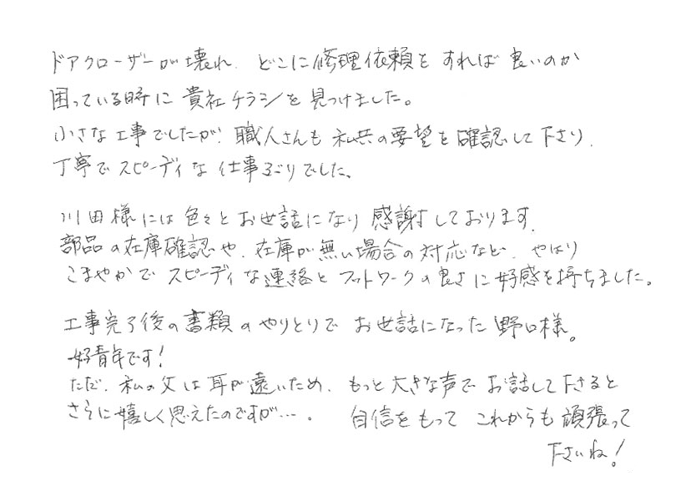 ドアクローザーが壊れ、どこに修理依頼をすれば良いのか
困っている時に貴社チラシを見つけました。
小さな工事でしたが、職人さんも私共の要望を確認して下さり、
丁寧でスピーディな仕事ぶりでした。
川田様には色々とお世話になり感謝しております。
部品の在庫確認や、在庫が無い場合の対応など、やはり
こまやかでスピーディな連絡とフットワークの良さに好感を持ちました。
工事完了後の書類のやりとりでお世話になった野口様。
好青年です!
ただ、私の父は耳が遠いため、もっと大きな声でお話して下さると
さらに嬉しく思えたのですが…。自信をもってこれからも頑張って
下さいね!